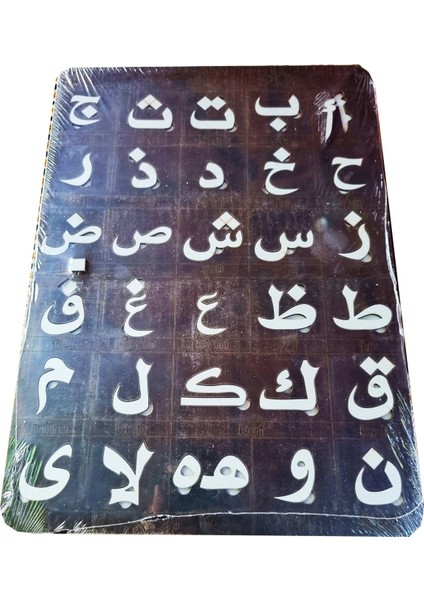 أ ب ت ث ج
ح خ د ذ ر
ز س ش ص ض
ط ظ ع غ ف
ق ك ک ل م
ن و هه لا ى